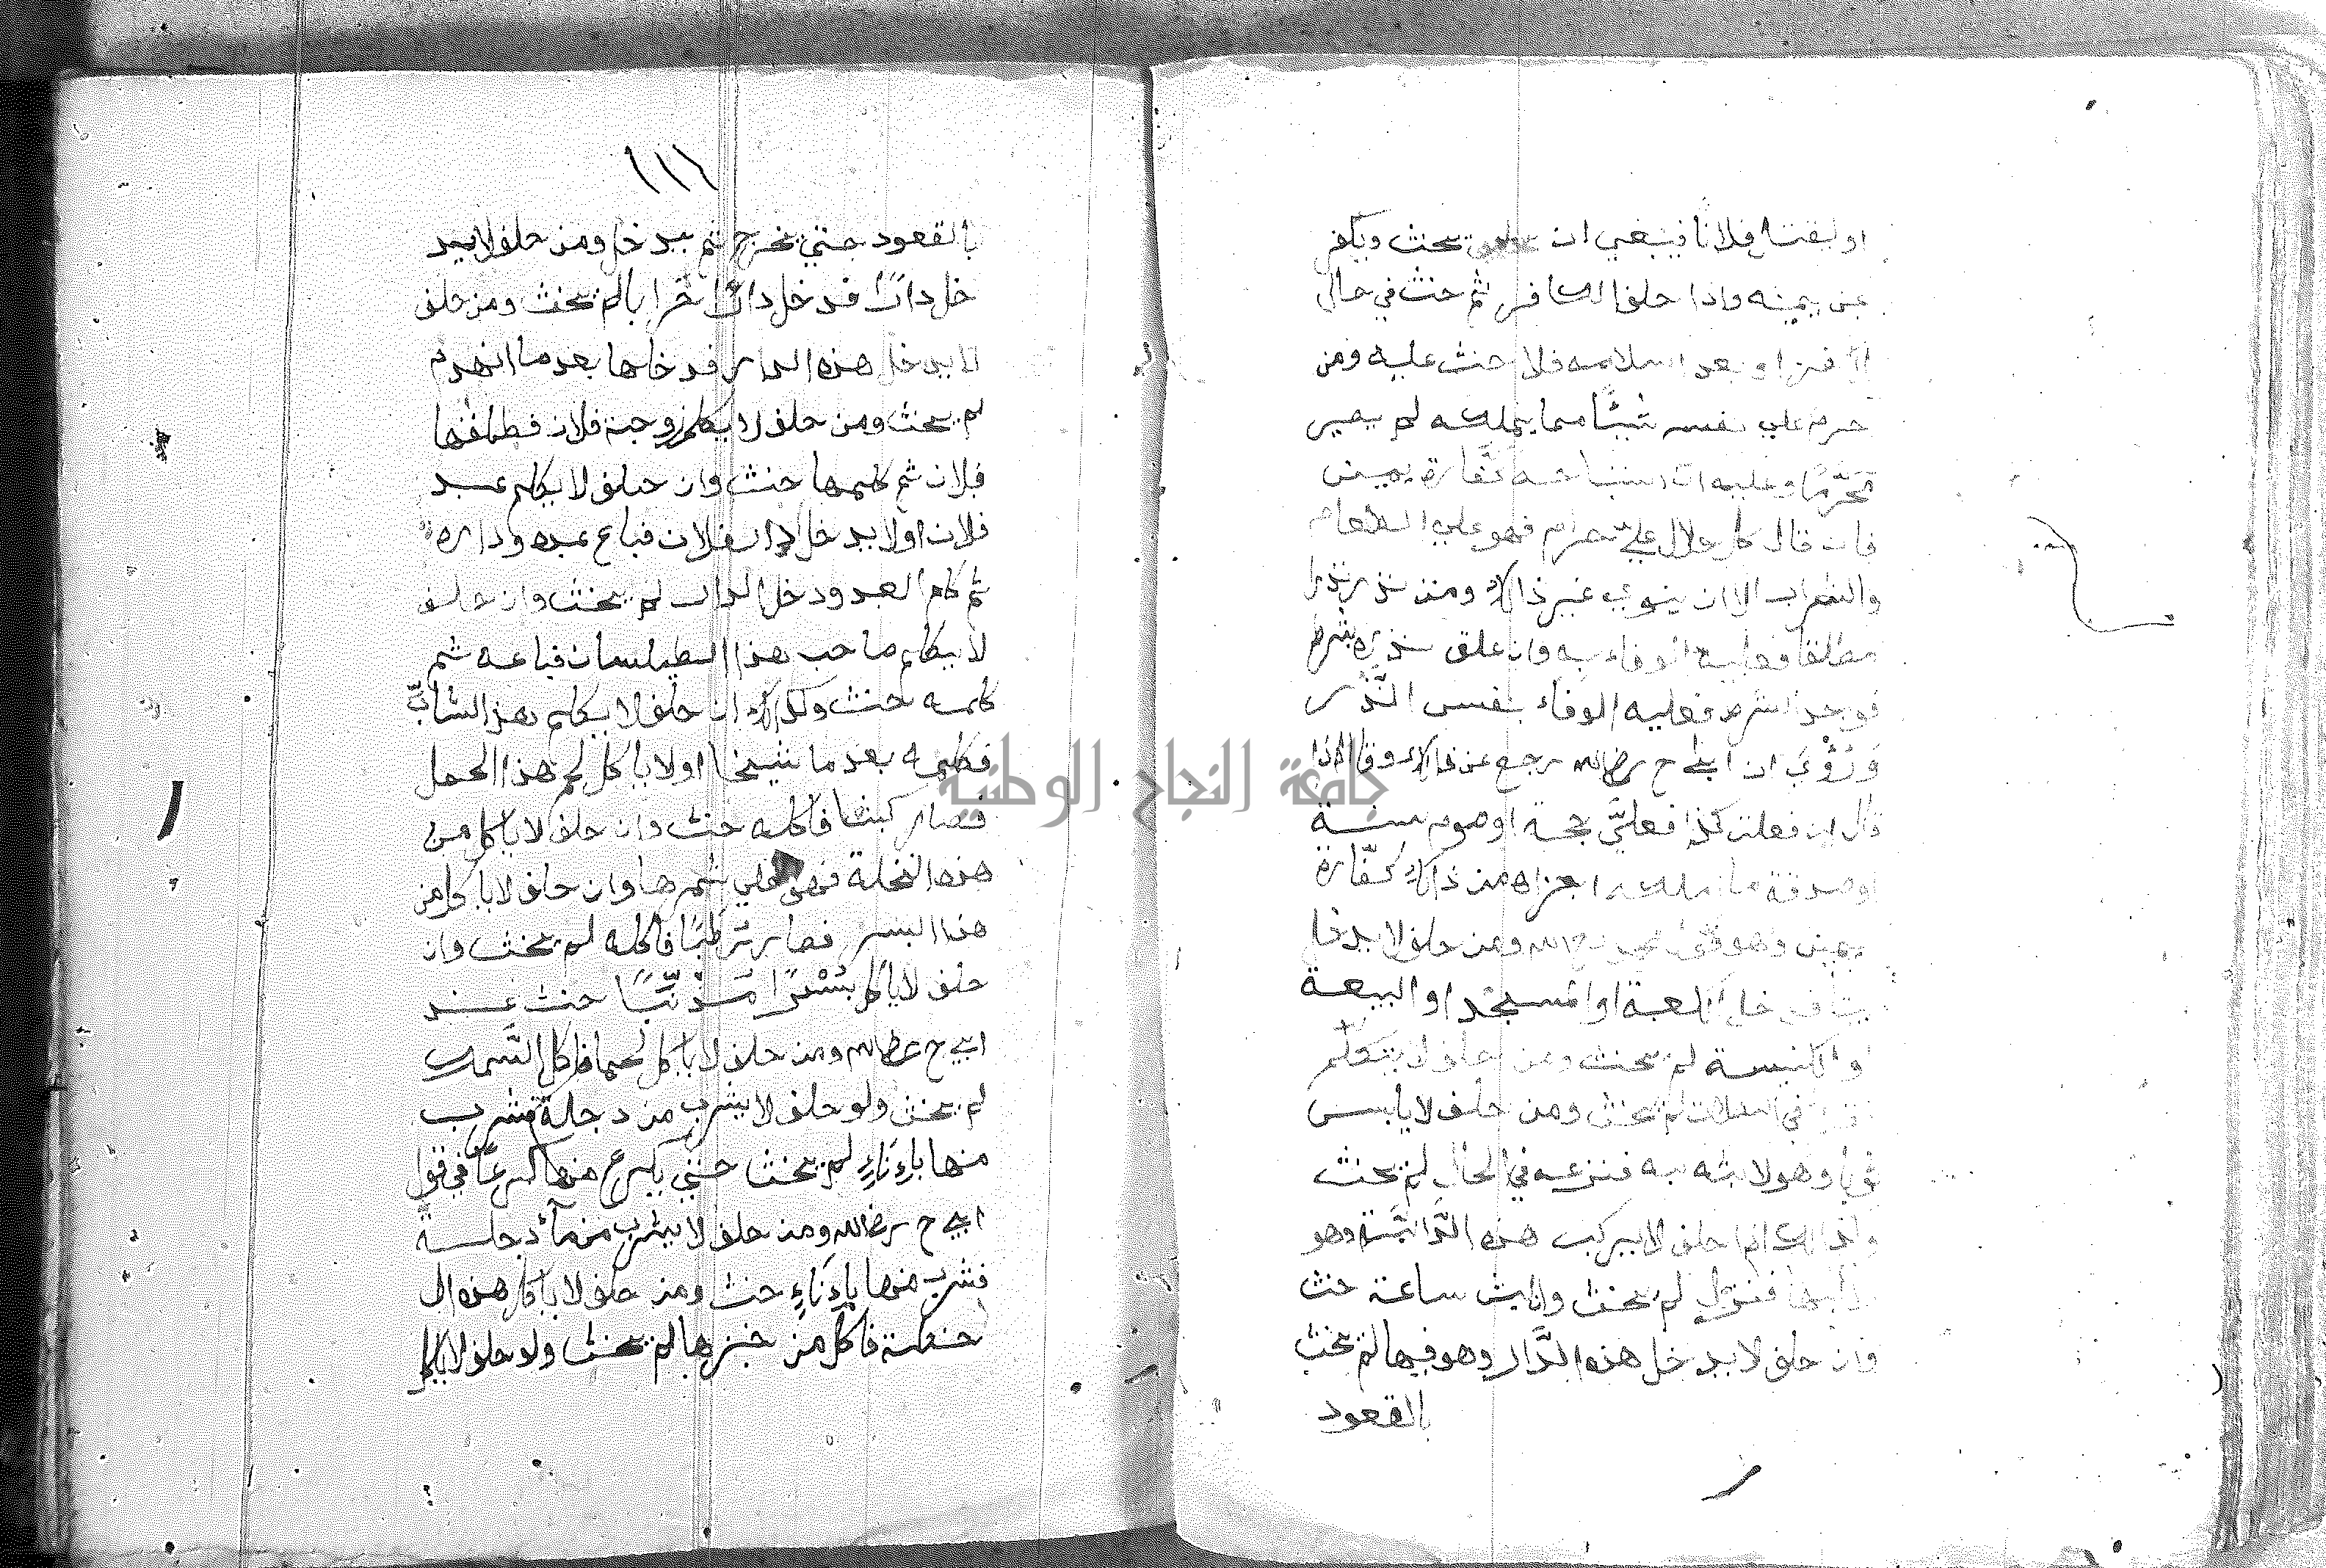 او ليقتلن فلانا فينبغي ان يحنث ويكفر
عن يمينه واذا حلف الكافر ثم حنث في حال
الكفر او بعد اسلامه فلا حنث عليه ومن
حرم علي نفسه شيئًا مما يملكه لم يصير
مُحَرَّمًا وعليه ان استباحه كفّارة يمين
فان قال كل حلال عليّ حرام فهو علي الطعام
والشراب الا ان ينوي غير ذالك ومن نذر نذرا
مطلقا فعليه الوفاء به وان علق نذره بشرط
فوجد الشرط فعليه الوفاء بنفس النَّذر
وَرُوْيَ ان ابي ح رضالله رجع عن ذالك وقال اذا
قال ان فعلت كذا فعليَّ حجة او صوم سنة
او صدقة ما املكه اجزاه من ذالك كفّارة
يمين وهو قول محمد رح الله ومن حلف لا يدخل
بيتا فدخل الكعبة او المسجد او البيعة
او الكنيسة لم يحنث ومن حلف لا يتكلّم
في الصلات لم يحنث ومن حلف لا يلبس
ثوبا وهو لابسه فنزعه في الحال لم يحنث
وكذالك اذا حلف لا يركب هذه الدَّابَّة وهو
راكبها فنزل لم يحنث وان لبث ساعة حنث
وان حلف لا يدخل هذه الدَّار وهو فيها لم يحنث
بالقعود
١١١
بالقعود حتي يخرج ثم يدخل ومن حلف لا يد
خل دارًا فدخل دارًا خرابا لم يحنث ومن حلف
لا يدخل هذه الدار فدخلها بعد ما انهدم
لم يحنث ومن حلف لا يكلم زوجة فلان فطلقها
فلان ثم كلمها حنث وان حلف لا يكلم عبد
فلان او لا يدخل دار فلان فباع عبده وداره
ثم كلم العبد ودخل الدار لم يحنث وان حلف
لا يكلم صاحب هذا الطيلسان فباعه ثم
كلمه حنث وكذالك ان حلف لا يكلم هذ الشابّ
فكلمه بعد ما شيخا او لا ياكل لحم هذا الحمل
فصار كبشا فاكله حنث وان حلف لا ياكل من
هذه النخلة فهو علي ثمرها وان حلف لا ياكل من
هذا البسر فصار رطبًا فاكله لم يحنث وان
حلف لا ياكل بُسْرًا مُذنِّبًا حنث عند
ابي ح رضالله ومن حلف لا ياكل لحما فاكل السَّمك
لم يحنث ولو حلف لا يشرب من دجلة فشرب
منها باِءنَاءٍ لم يحنث حتي يكرع منها كرعًا في قول
ابي ح رضالله ومن حلف لا يشرب من مآء دجلة
فشرب منها باِءنَاءٍ حنث ومن حلف لا ياكل هذه ال
حنطة فاكل من خبزها لم يحنث ولو حلف لا ياكل
جامعة النجاح الوطنية